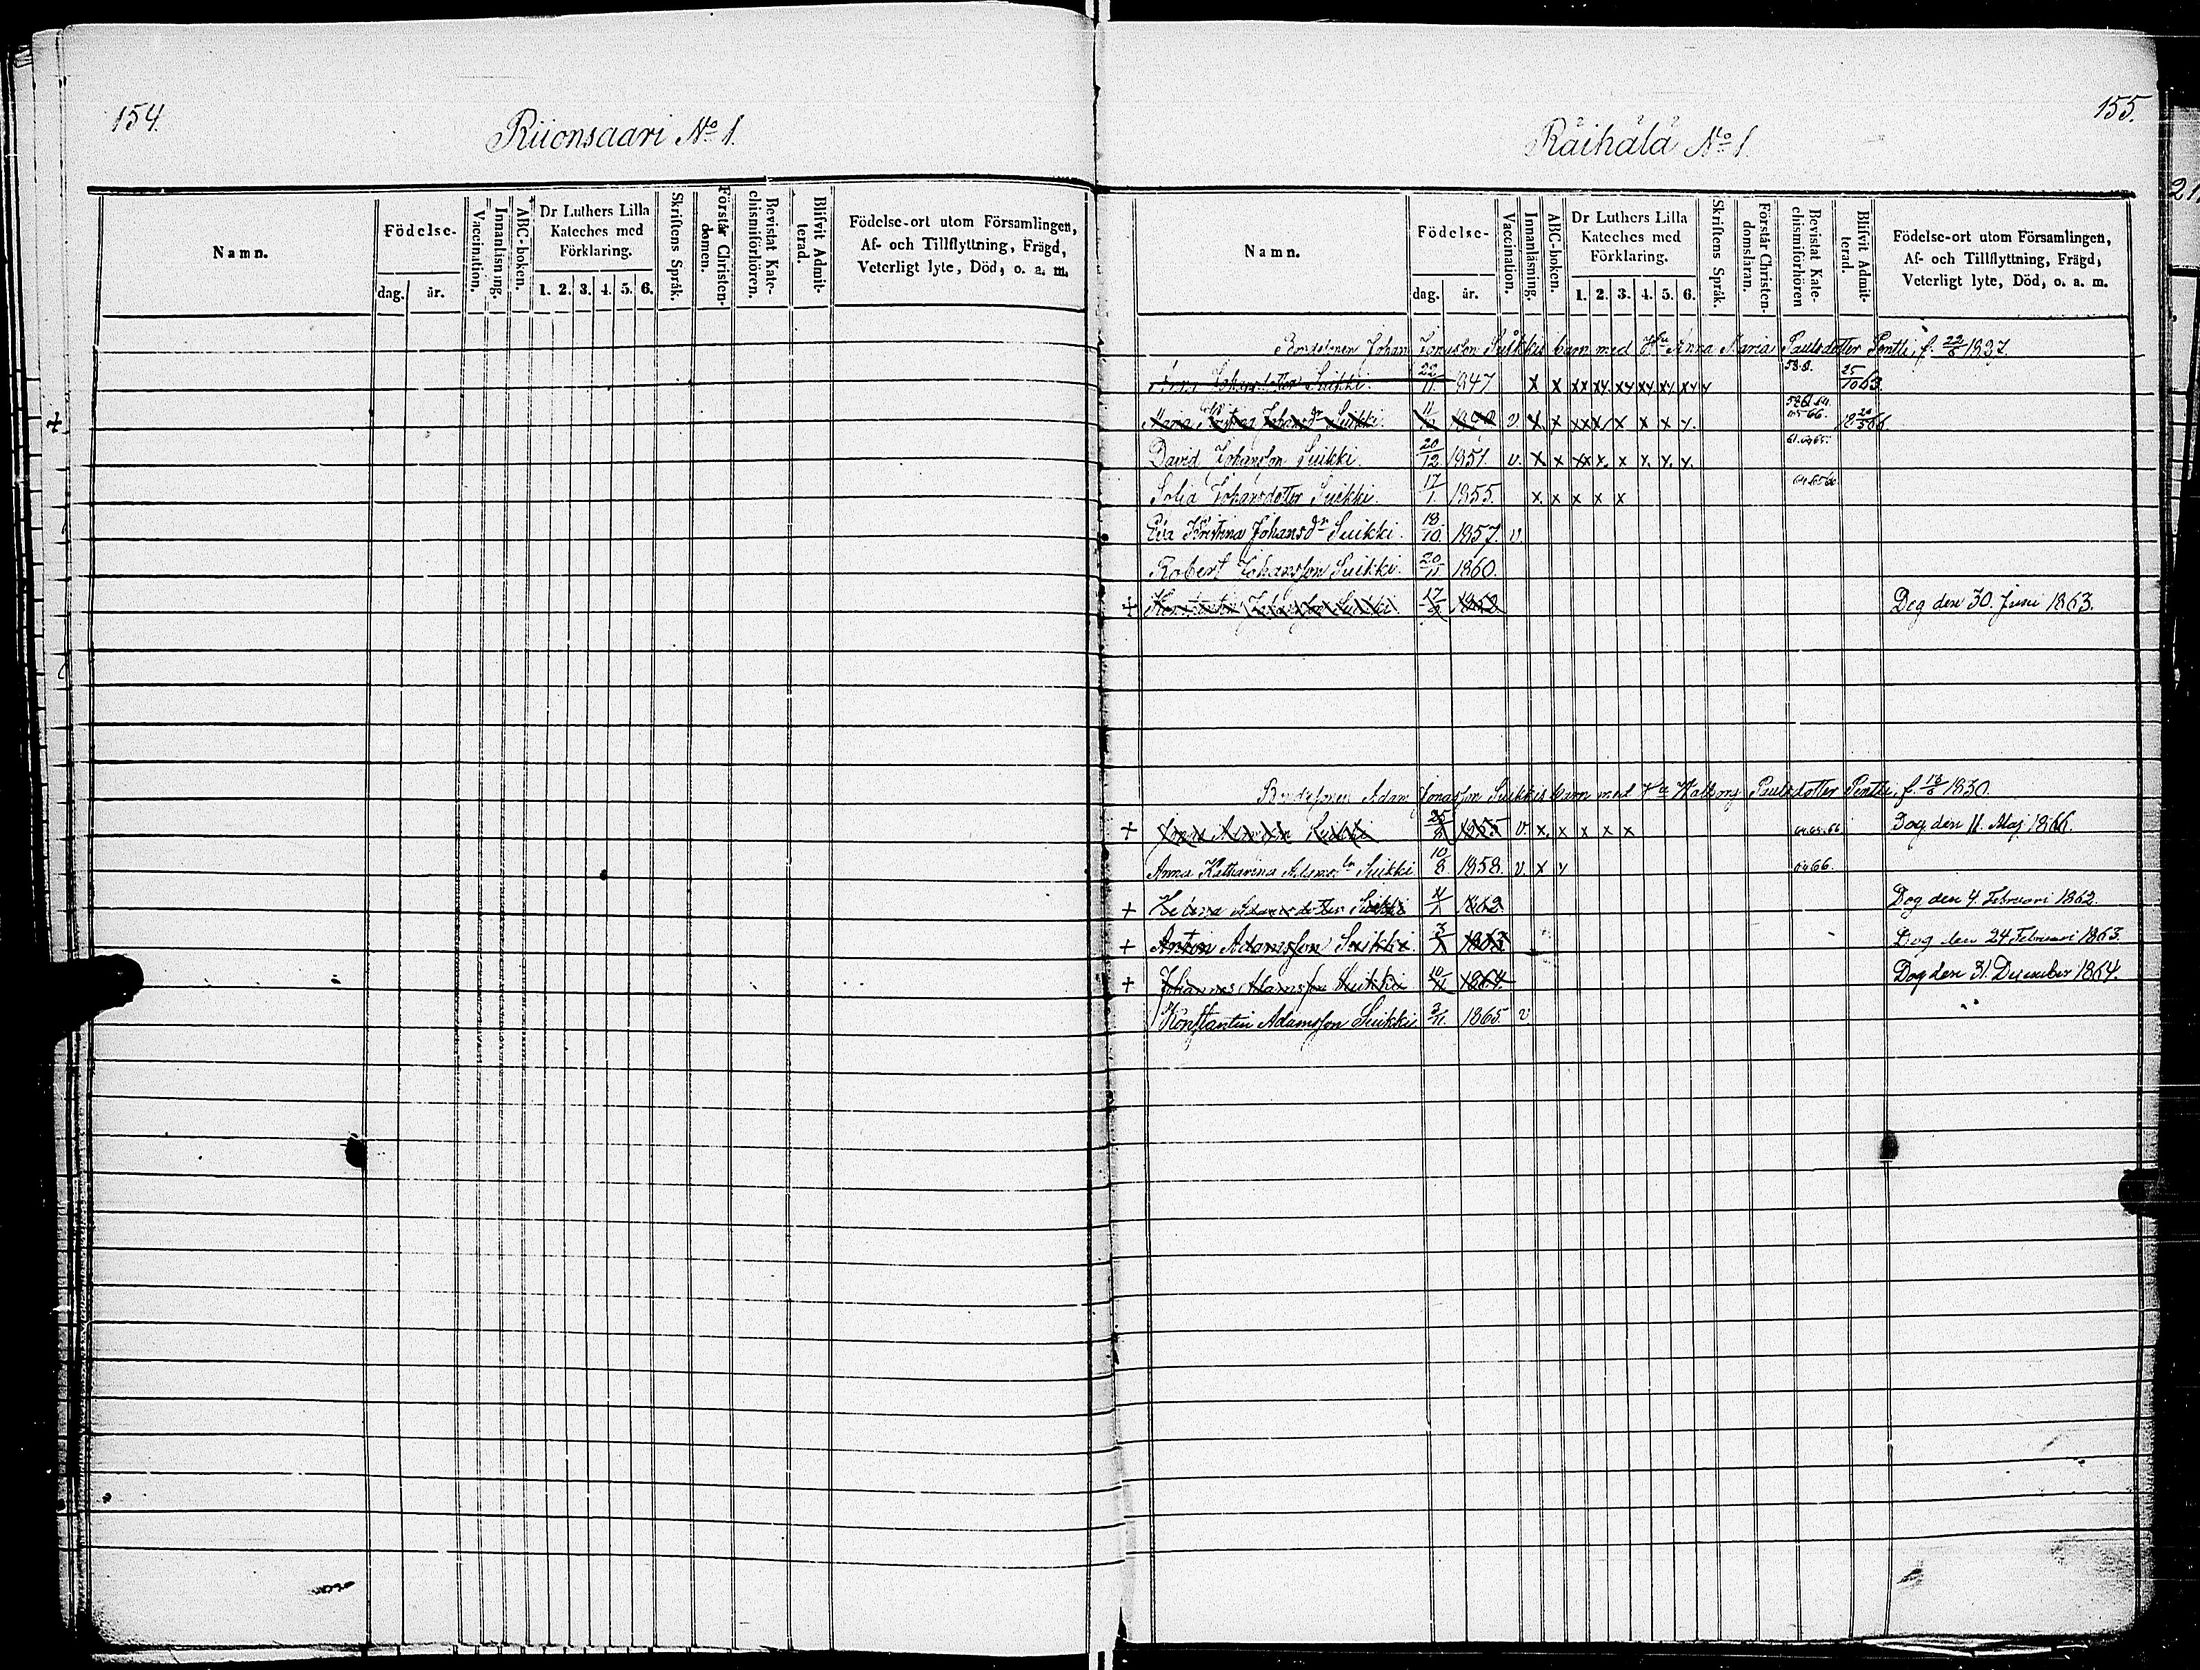 154.
Riionsaari No 1.
Namn.
Födelse-
dag. år.
Vaccination.
Innanläsning.
ABC-boken.
Dr Luthers Lilla
Kateches med
Förklaring.
1. 2. 3. 4. 5. 6.
Skriftens Språk.
Förstår Christen-
domen.
Bevistat Kate-
chismiförhören.
Blifvit Admit-
terad.
Födelse-ort utom Församlingen,
Af- och Tillflyttning, Frägd,
Veterligt lyte, Död, o. a. m.
155.
Räihälä No 1.
Namn.
Födelse-
dag. år.
Vaccination.
Innanläsning.
ABC-boken.
Dr Luthers Lilla
Kateches med
Förklaring.
1. 2. 3. 4. 5. 6.
Skriftens Språk.
Förstår Christen-
domsläran.
Bevistat Kate-
chismiförhören
Blifvit Admit-
terad.
Födelse-ort utom Församlingen,
Af- och Tillflyttning, Frägd,
Veterligt lyte, Död, o. a. m.
Johan Jonasson Suikkis barn med Hu Anna Maria Paulsdotter Pentti, f. 22/6 1827.
Anna Johansdotter Suikki. 22/11 1847 x x xx xy xy xy xy xy y 25/10 63.
Maria Johansdr Suikki. 11/ v x x xx x x x x y. 65-66.
David Johansson Suikki. 20/12 1851. v. x x xx x. x y. y. y.
Sofia Johansdotter Suikki. 17/1 1855. x x x x x
Eva Kristina Johansdr Suikki. 18/10 1857. v
Robert Johansson Suikki. 20/11 1860.
+ Konstantin Johansson Suikki. 17/ 1862 Dog den 30. Juni 1863.
Adam Jonasson Suikkis barn med Hu Walborg Paulsdotter Pentti, f. 18/6 1830.
+ Jonas Adamsson Suikki 25/8 1855 v. x x x x x 64.65.66 Dog den 11. Maj 1866.
Anna Katharina Adamsdr Suikki 10/8 1858. v. x y 64 66.
+ Helena Adamsdotter Suikki 4/1 1862 Dog den 4. Februari 1862.
+ Anton Adamsson Suikki. 3/1 1863 Dog den 24 Februari 1863.
+ Johannes Adamsson Suikki 10/11 1864. Dog den 31. December 1864.
Konstantin Adamsson Suikki 3/11. 1865. v.